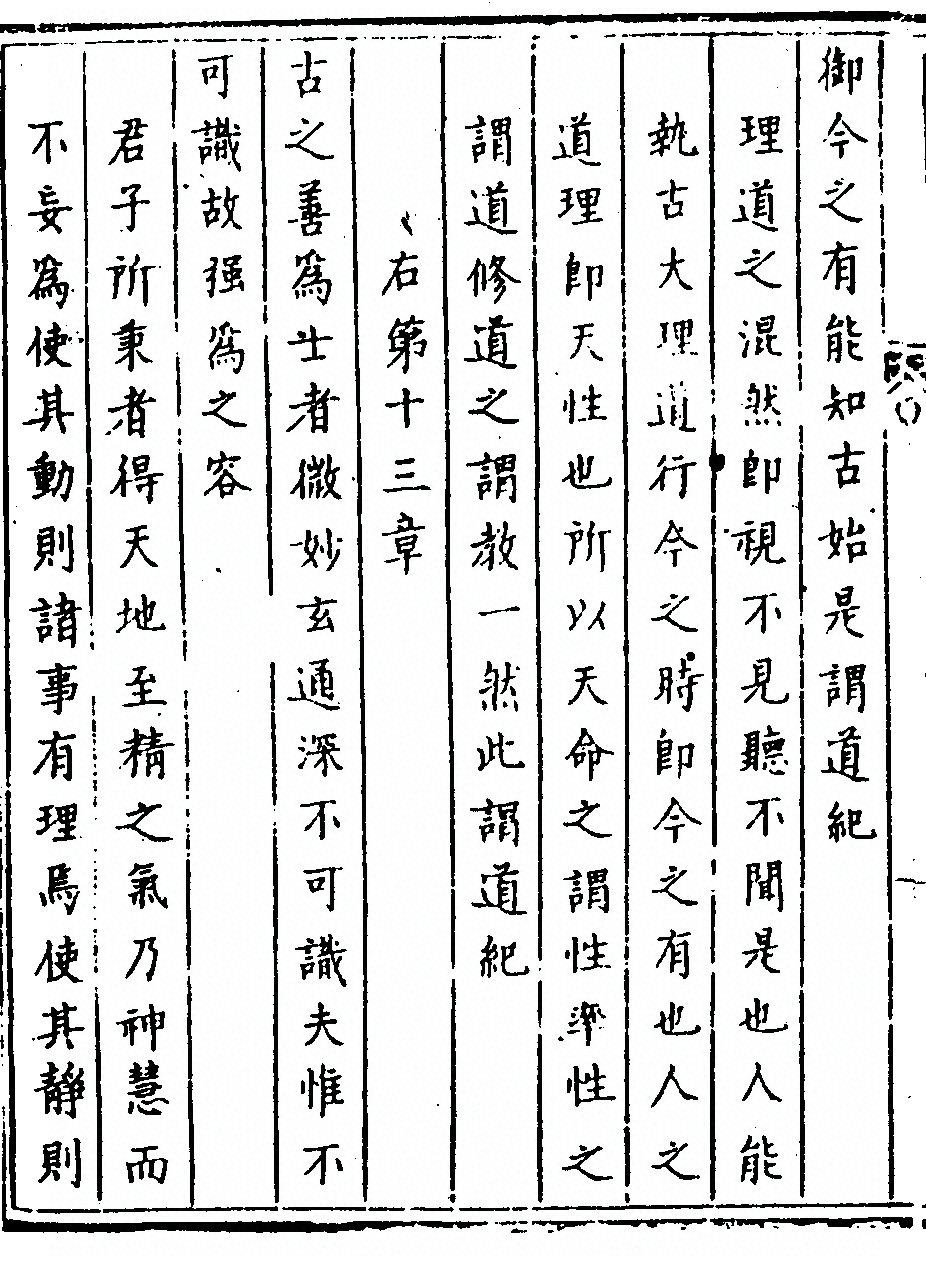 御今之有能知古始是謂道紀
理道之混然即視不見聽不聞是也人能
執古大理道行今之時即今之有也人之
道理即天性也所以天命之謂性率性之
謂道修道之謂教一然此謂道紀
右第十三章
古之善為士者微妙玄通深不可識夫惟不
可識故强為之容
君子所秉者得天地至精之氣乃神慧而
不妄為使其動則諸事有理焉使其靜則